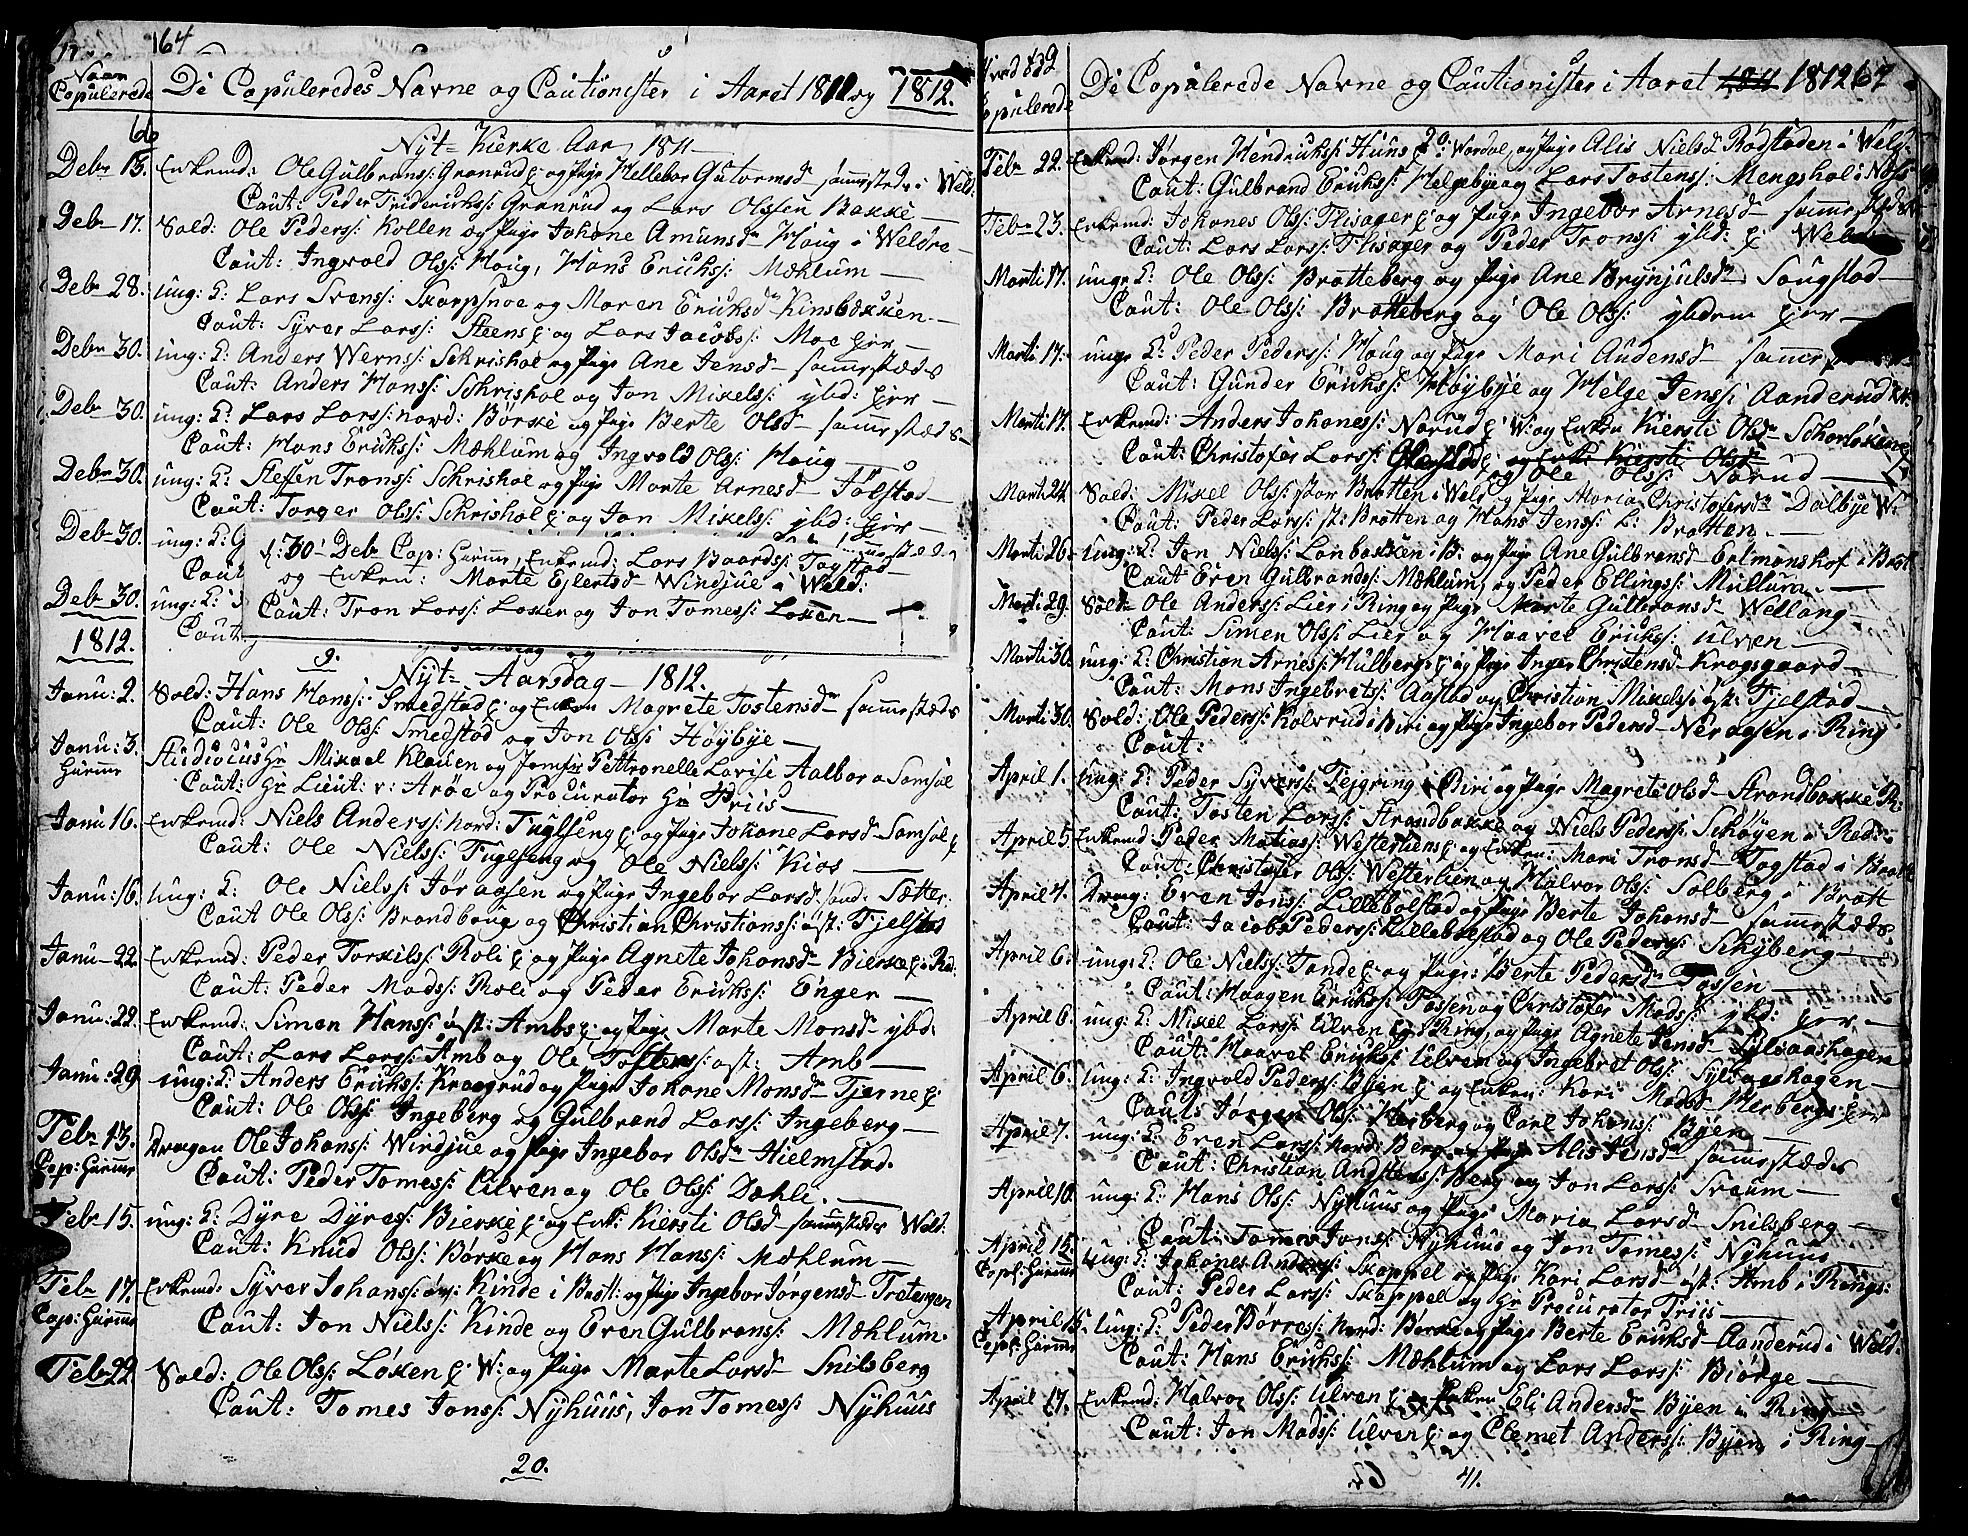 164
Naar
Copulerede
De Copuleredes Navne og Cautionister i Aaret 1811 og 1812.
66
Nyt-Kierke Aar 1811
Debr 13. Enkemd: Ole Gulbrans: Granrud og Pige Helleber Gutormsd sammestæds i Weld:
Caut: Peder Friderichs: Granrud og Lars Olssen Bakke
Debr 17. Sold: Ole Peders: Kollen og Pige Johane Amunsd Houg i Weldre
Caut: Ingvold Olss: Houg, Hans Erichs: Mæhlum
Debr 28. ung: K: Lars Svens: Skarpsnoe og Maren Ericksd Kinsbakken
Caut: Syver Larss: Steens og Lars Jacobs: Moe
Debr 30. ung: K: Anders Werns: Schrishol og Pige Ane Jensd sammestæds
Caut: Anders Hans: Schrishol og Jon Mikels: ybd:
Debr 30. ung: K: Lars Larss: nord: Børke og Pige Berte Olsd sammestæds
Caut: Hans Erichs: Mæhlum og Ingvold Olss: Houg
Debr 30. ung: K: Steffen Trons: Schrishol og Pige Marte Arnesd Jølstad
Caut: Torger Olss: Schrishol og Jon Mikels: ybd:
Debr 30. ung: K:
Caut
d: 30 Debr Cop: Enkemd: Lars Baards: Togstad
og Enken: Marte Ejlertsd Windjue i Weld:
Caut: Tron Larss: Løken og Jon Tomess: Løken
Debr 30. ung: K:
Caut:
1812.
9.
Nyt-Aarsdag 1812.
Janu: 2. Sold: Hans Hans: Smedstad og Enken Magrete Tostensd sammestæds
Caut: Ole Olss: Smedstad og Jon Olss: Høybye
Janu: 3. Studiosus Hr Mikael Klauen og Jomfru Pettronelle Lovise Aalbor a Somsøl
Caut: Hr Lieut: v: Arøe og Procurator Hr Priis
Janu 16. Enkemd: Niels Anders: nord: Fuglseng og Pige Johane Larsd Samsøl
Caut: Ole Niels: Fuglseng og Ole Niels: Kios
Janu: 16. ung: K: Ole Niels: Jøraasen og Pige Ingebor Larsd sønd: Sætter
Caut Ole Olss: Brandboug og Christian Christians: øst: Fjelstad
Janu 22. Enkemd: Peder Torkils: Roli og Pige Agnete Johansd Bierke i Rd:
Caut: Peder Mads: Roli og Peder Ericks: Enger
Janu: 22. Enkemd: Simen Hans: øst: Ambs og Pige Marte Monsd ybd:
Caut: Lars Larss: Amb og Ole Tostens: øst: Amb
Janu: 29. ung: K: Anders Ericks: Kraagrud og Pige Johane Monsd Tjerne
Caut: Ole Olss: Ingeberg og Gulbrand Larss: Ingeberg
Febr 13. Dragon Ole Johans: Windjue og Pige Ingebor Olsd Hielmstad.
Caut: Peder Tomess: Ulven og Ole Olss: Dæhli.
Febr 15. ung: K: Dyre Dyres: Bierke og Enk: Kiersti Olsd sammestæds Weld:
Caut: Knud Olss: Børke og Hans Hans: Mæhlum
Febr 17. Enkemd: Syver Johans: Kinde i Brøtt: og Pige Ingebor Jørgensd Tretergen
Caut: Jon Niels: Kinde og Even Gulbrans: Mæhlum.
Febr 22. Sold: Ole Olss: Løken W: og Pige Marte Larsd Snilsberg
Caut: Tomes Jons: Nyhuus, Jon Tomess: Nyhuus
20.
Copulerede
De Copulerede Navne og Cautionister i Aaret 1811 1812 67
Febr 22. Enkemd: Jørgen Hendricks: Huns Wardal, og Pige Alis Nielsd Rødstøden i Weld:
Caut: Gulbrand Ericks: Helgebye og Lars Tostens: Mengshol i Næs
Febr 23. Enkemd: Johanes Olss: Flisager og Pige Ingebor Arnesd sammestæds
Caut: Lars Larss: Flisager og Peder Trons: ybd:
Marti 17. unge K: Ole Olss: Bratteberg og Pige Ane Brynjulsd Sougstad
Caut: Ole Olss: Bratteberg og Ole Olss: ybdem
Marti 17. unge K: Peder Peders: Houg og Pige Mari Audensd sammestæds
Caut: Gunder Ericks: Høybye og Helge Jens: Aanderud
Marti 17. Enkemd: Anders Johanes: Narud W: og Enken Kiersti Olsd Schorløkene
Caut: Christofer Larss: og Enk: Kiersti Olsd
og Ole Olss: Narud
Marti 24. Sold: Mikel Olss: stor Bratten i Weld og Pige Maria Christofersd Dalbye W:
Caut: Peder Larss: st: Bratten og Hans Jens: L: Bratten.
Marti 26. ung: K: Jon Niels: Lonbakken i B: og Pige Ane Gulbransd Colmonshof i Brøtt
Caut Even Gulbrands: Mæhlum, og Peder Ellings: Mullum
Marti 29. Sold: Ole Anders: Lier i Ring og Pige Marte Gulbransd Wellang
Caut: Simen Olss: Lier og Haavel Ericks: Ulven
Marti 30. ung: K: Christian Arnes: Hulberg og Pige Inger Christensd Krogsgaard
Caut: Mons Ingebrets: Aastad og Christian Mikels: øst: Fjelstad
Marti 30. Sold: Ole Peders: Kolvrud i Biri og Pige Ingebor Pedersd Neraasen i Ring
Caut:
April 1. ung: K: Peder Syvers: Fejgring i Biri og Pige Magrete Olsd Strandbakke R:
Caut: Tosten Larss: Strandbakke og Niels Peders: Schøyen i Red:
April 5. Enkemd: Peder Matias: Westerliens og Enken: Mari Tronsd Togstad i Brøtt
Caut: Christofer Olss: Westerlien og Halvor Olss: Solberg i Brøtt
April 4. Drag: Even Jons: Lillebølstad og Pige Berte Johansd sammestæds.
Caut: Jacob Peders: Lillebølstad og Ole Peders: Schyberg
April 6. ung: K: Ole Niels: Tande og Pige: Berte Pedersd Fossen
Caut: Haagen Ericks: Fossen og Christofer Mads: ybd:
April 6. ung: K: Mikel Larss: Ulven i Ring, og Pige Agnete Jensd Syljaashagen
Caut: Haavel Ericks: Ulven og Ingebret Olss: Syljaashagen
April 6. ung: K: Ingvold Peders: Byen og Enken: Kari Madsd Herberg
Caut: Jørgen Olss: Herberg og Carl Johans: Byen
April 7. ung: K: Even Larss: nord: Berg og Pige Alis Jensd sammestæds
Caut: Christian Andstens: Berg og Jon Larss: Sveum
April 10. ung: K: Hans Olss: Nyhuus og Pige Maria Larsd Snilsberg
Caut: Tomes Jons: Nyhuus og Jon Tomess: Nyhuus
April 15. ung: K: Johanes Anders: Skappel og Pige Kari Larsd øst: Amb i Rings:
Caut: Peder Larss: Skappel og Hr Procurator Friis
April 15. ung: K: Peder Børres: nord: Børke og Pige Berte Ericksd Aanderud i Weld:
Caut: Hans Ericks: Mæhlum og Lars Larss: Biørge
April 17. Enkemd: Halvor Olss: Ulven og Enken Eli Andersd Byen i Ring
Caut: Jon Mads: Ulven og Clemet Anders: Byen i Ring
41.